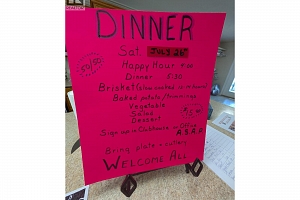 DINNER
Sat. JULY 26
Happy Hour
Dinner
Brisket
Baked potato/trimmings
Vegetable
Salad
Dessert
Sign up in Clubhouse
A.S.A.P
Bring plate + cutlery
WELCOME ALL